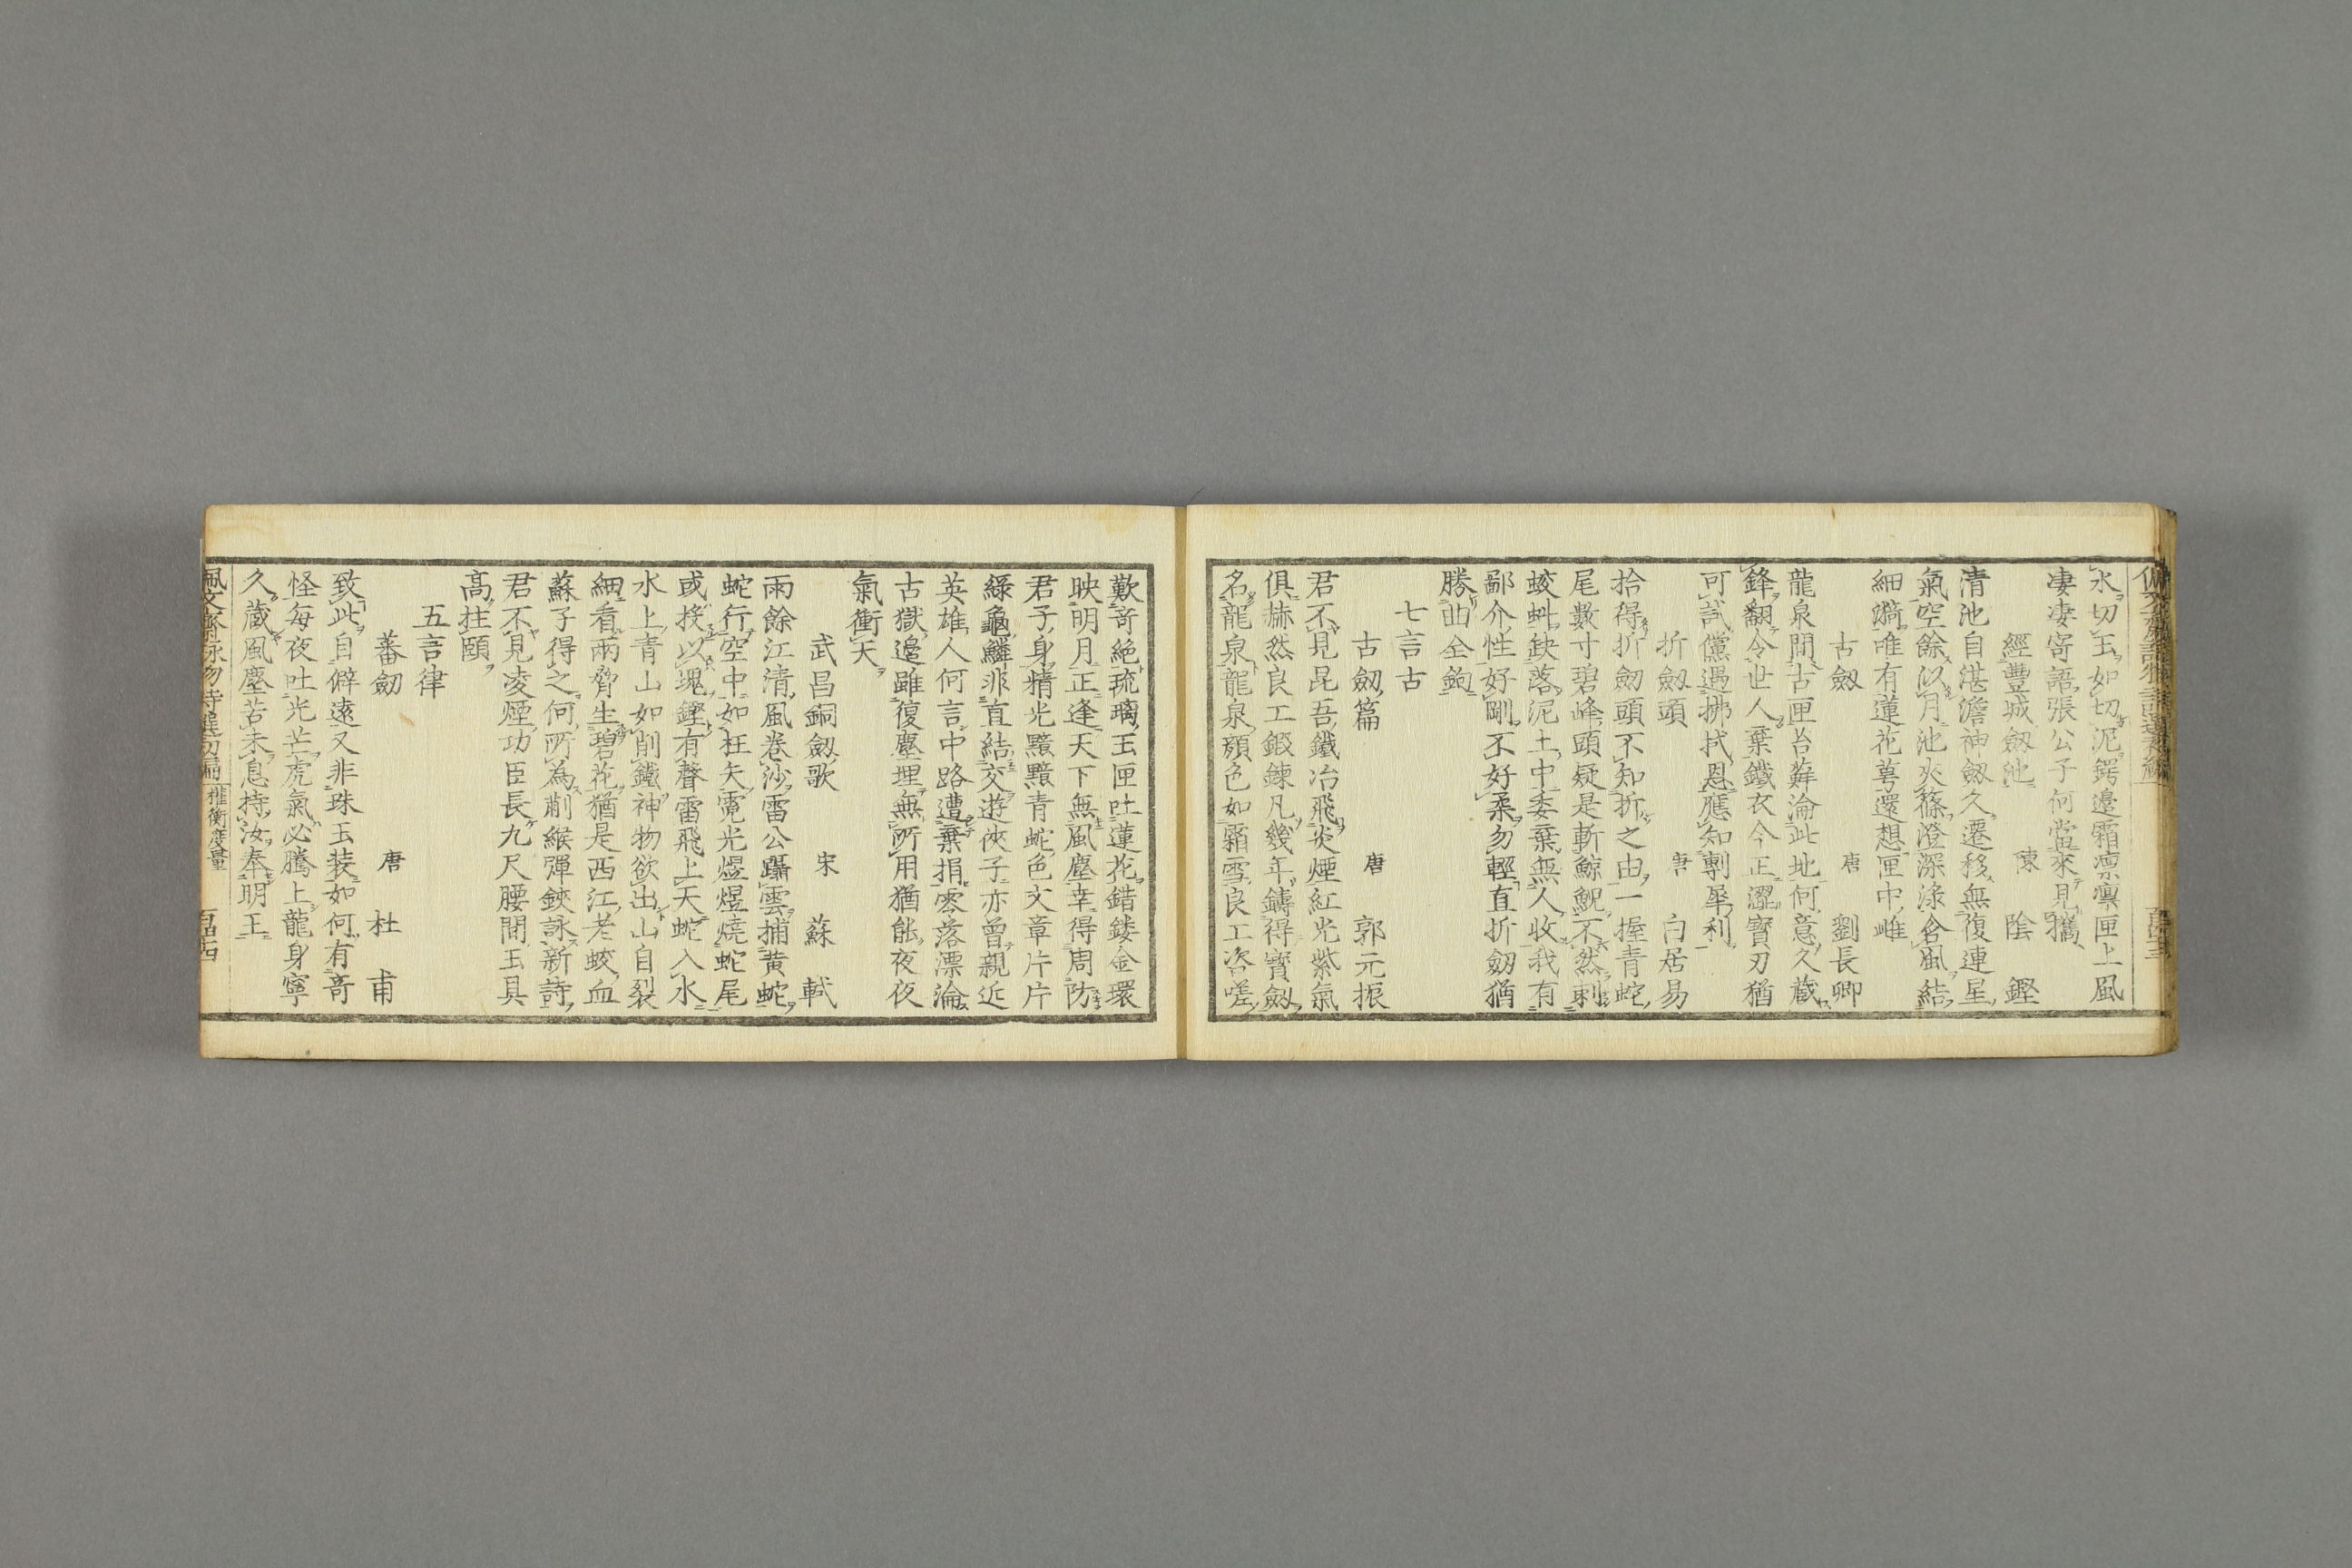 水切玉如切泥鍔邊霜凛凛匣上風
凄凄寄語張公子何當來見攜
經豐城劔池 陳 陰 鏗
清池自湛澹神劔久遷移無復連星
氣空餘以月池夾篠澄深淥含風結
細漪唯有蓮花萼還想匣中雌
古劔 唐 劉長卿
龍泉間古匣苔蘚淪此地何意久藏
鋒翻令世人棄鐵衣今正澀寳刃猶
可試儻遇拂拭恩應知剸犀利
折劔頭 唐 白居易
拾得折劔頭不知折之由一握青蛇
尾數寸碧峰頭疑是斬鯨鯢不然刺
蛟虯缺落泥土中委棄無人收我有
鄙介性好剛不好柔勿輕直折劔猶
勝曲全鉤
七言古
古劔篇 唐 郭元振
君不見昆吾鐵冶飛炎煙紅光紫氣
俱赫然良工鍛鍊凡幾年鑄得寳劔
名龍泉龍泉顔色如霜雪良工咨嗟
歎竒絶琉璃玉匣吐蓮花錯鏤金環
映明月正逢天下無風塵幸得周防
君子身精光黯黯青蛇色文章片片
綠龜鱗非直結交遊俠子亦曾親近
英雄人何言中路遭棄捐零落漂淪
古獄邉雖復塵埋無所用猶能夜夜
氣衝天
武昌銅劔歌 宋 蘇 軾
雨餘江清風卷沙雷公躡雲捕黄蛇
蛇行空中如枉矢電光煜煜燒蛇尾
或投以塊鏗有聲雷飛上天蛇入水
水上青山如削鐵神物欲出山自裂
細看兩脅生碧花猶是西江老蛟血
蘇子得之何所為蒯緱彈鋏詠新詩
君不見凌煙功臣長九尺腰間玉具
髙拄頤
五言律
蕃劔 唐 杜 甫
致此自僻遠又非珠玉装如何有竒
怪每夜吐光芒虎氣必騰上龍身寧
久藏風塵苦未息持汝奉明王